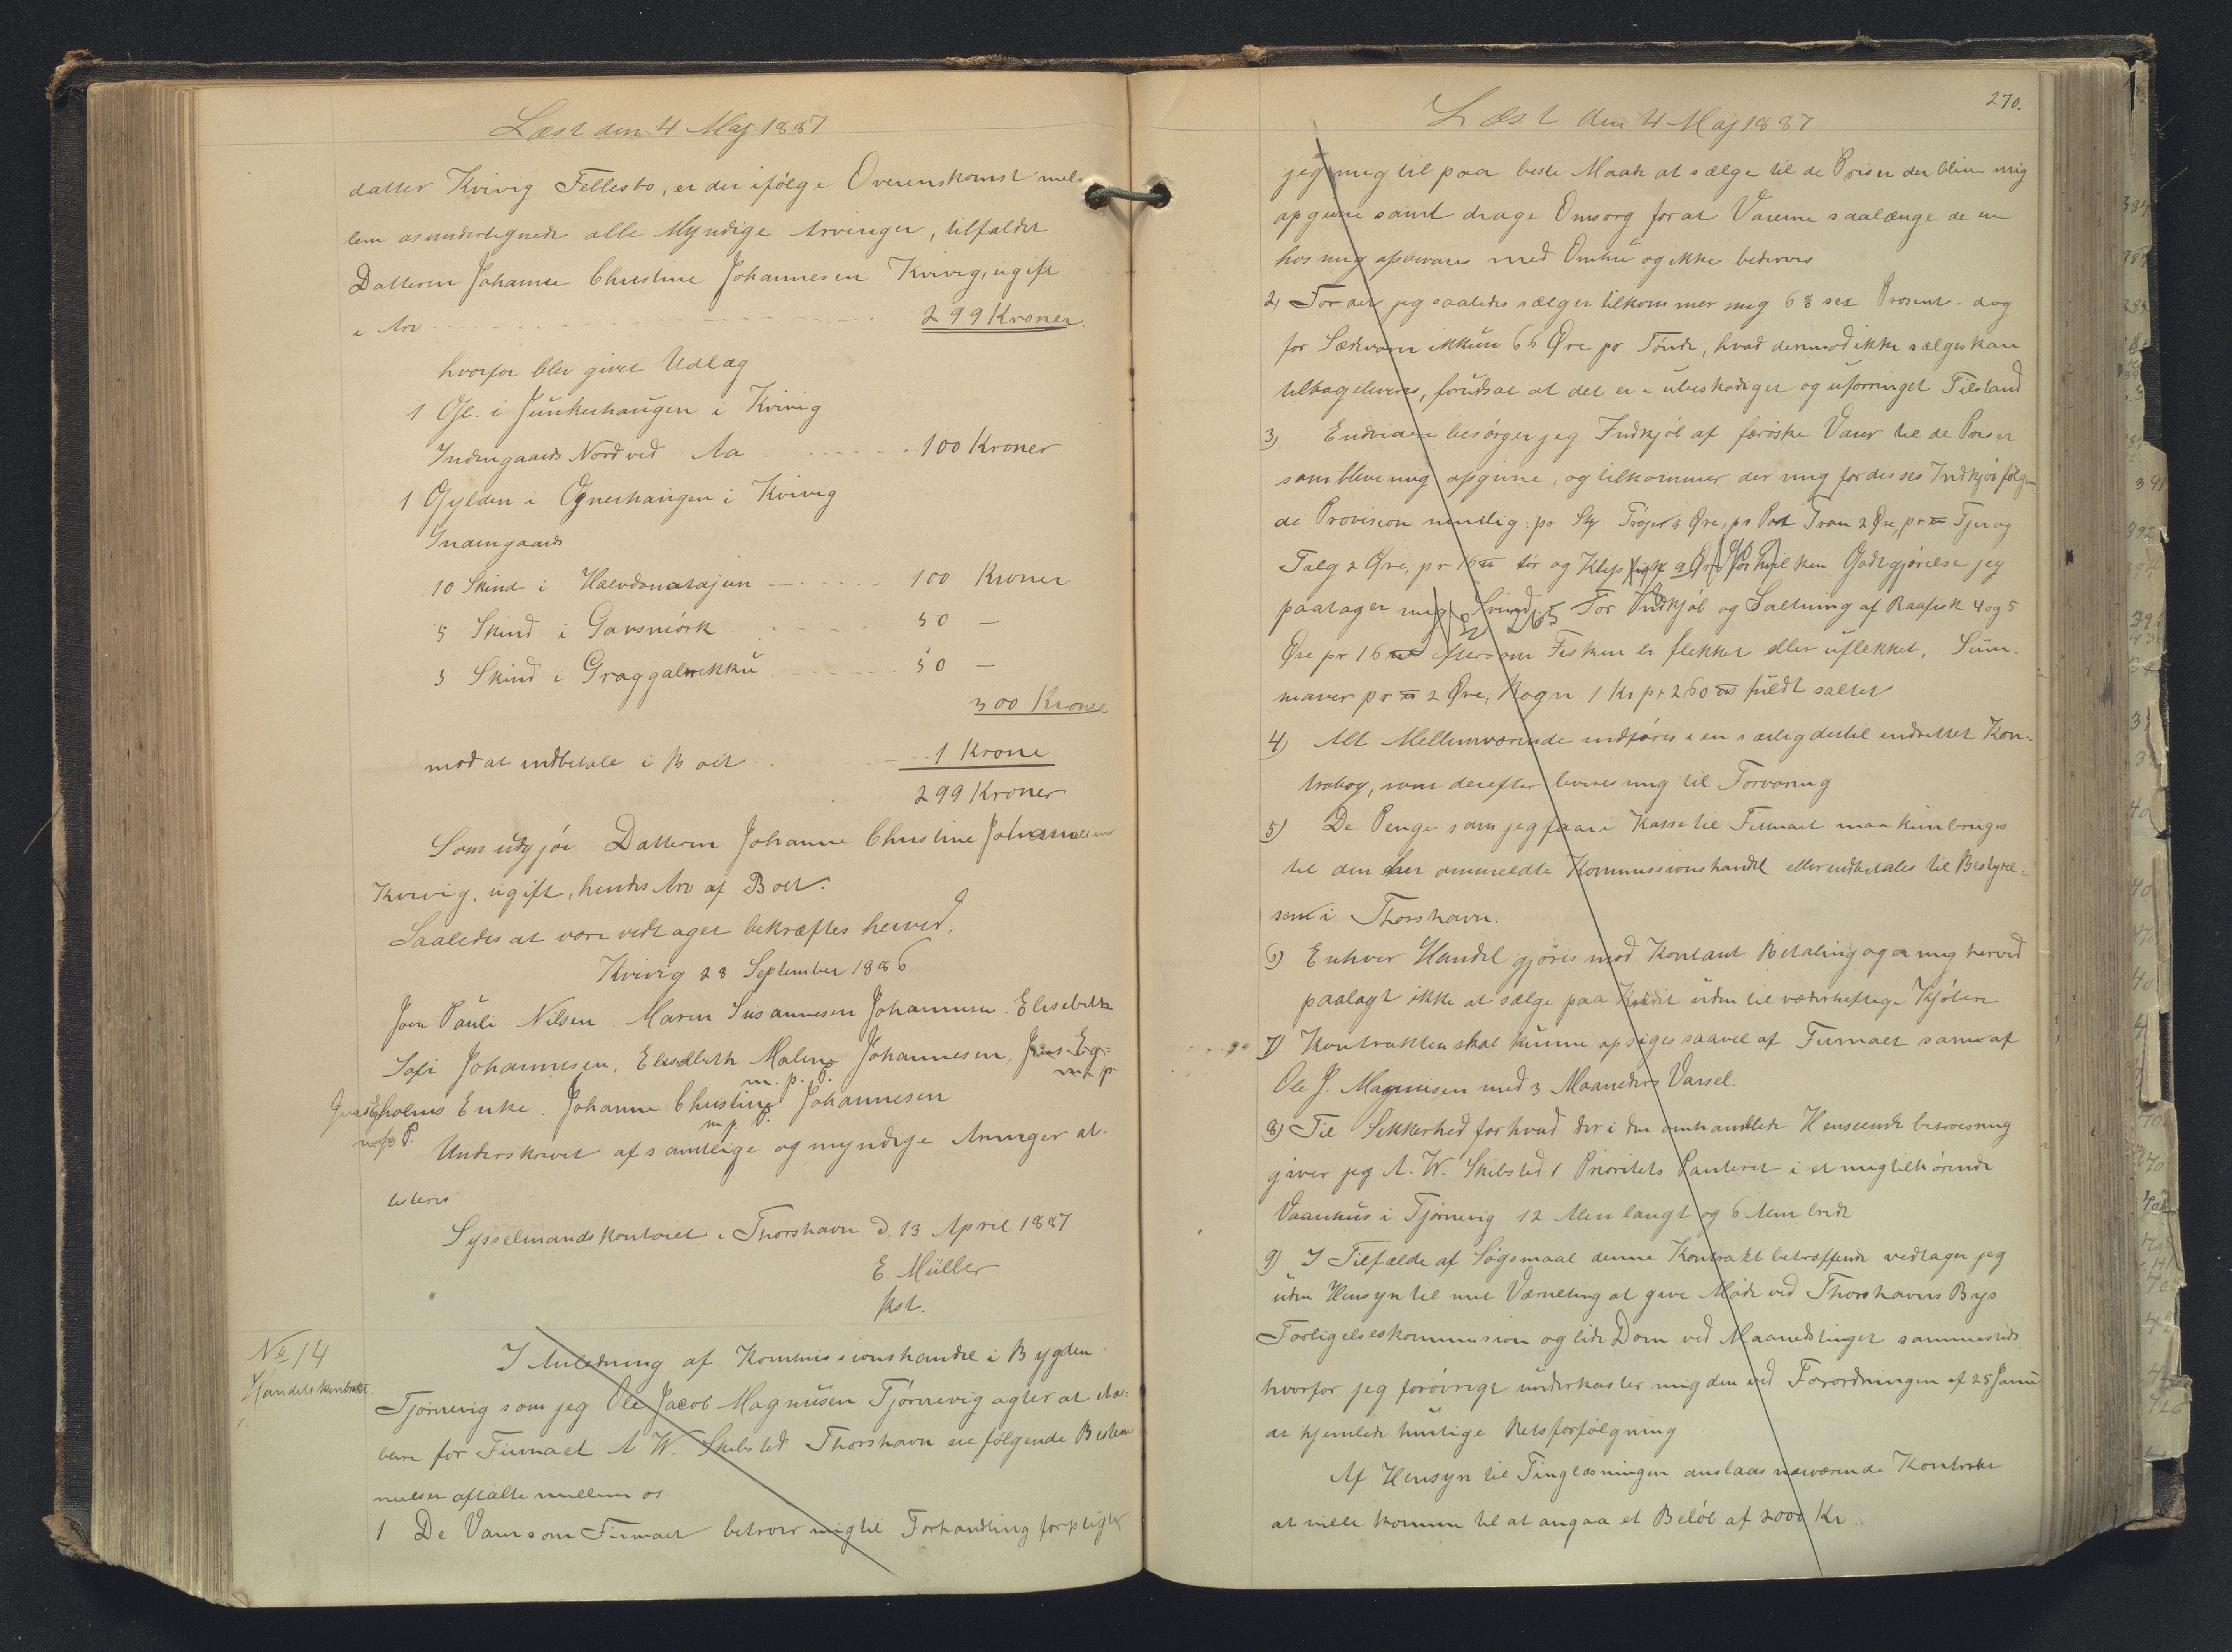 Læst den 4 Maj 1887
datter Kvivig Fellesbo, er der ifølge Overenskomst mel-
lem os undertegnede alle Myndige Arvinger, tilfaldet
Datteren Johanne Christine Johannesen Kvivig, ugift
i Arv 299 Kroner
hvorfor blev givet Udlæg
1 Gl. i Junkerhaugen i Kvivig
Indengaards Nord ved Aa 100 Kroner
1 Gylden i Ognerhaugen i Kvivig
Indengaards
10 Skind i 100 Kroner
5 Skind i Garsmörk 50 —
5 Skind i 50 —
300 Kroner
mod at indbetale i Boet 1 Krone
299 Kroner
Som udgjör Datteren Johanne Christine Johannesen
Kvivig, ugift, hendes Arv af Boet.
Saaledes at være vedtaget bekræftes herved.
Kvivig 28 September 1886
Joen Pauli Nilsen Maren Susannesen Johannesen. Elisebeth
Sofi Johannesen, Elisabeth Malene Johannesen, Jens Eg-
m. p. P. m f p
Jens Egholms Enke. Johanne Christine Johannesen
m f P. m. p. P.
Underskrevet af samtlige og myndige Arvinger at-
testeres
Sysselmandskontoret i Thorshavn d. 13 April 1887
E Müller
kst.
No 14
Handelskontrakt.
I Anledning af Kommissionshandel i Bygden
Tjørnevig som jeg Ole Jacob Magnusen Tjørnevig agter at eta-
blere for Firmaet A W. Skibsted Thorshavn ere følgende Bestem
melser aftalte mellem os.
1 De Varer som Firmaet betroer mig til Forhandling forpligter
270.
Læst den 4 Maj 1887
jeg mig til paa beste Maade at sælge til de Priser der blive mig
opgivne samt drage Omsorg for at Varerne saalænge de ere
hos mig opbevares med Omhu og ikke bederves
2) For det jeg saaledes sælger tilkommer mig 6% sex Prosent - dog
for Sædvarer ikkun 66 Øre pr Tønde, hvad derimod ikke sælges kan
tilbageleveres, forudsat at det er i ubeskadiget og uforringet Tilstand
3) Endvidere besørger jeg Indkjøb af færøske Varer til de Priser
som bleve mig opgivne, og tilkommer der mig for disses Indkjøb følgen
de Provision nemlig: pr Stk Trøjer 6 Øre, pr Pot Tran 2 Øre, pr ℔ Fjer og
Talg 2 Øre, pr 16 ℔ tør og Klipfisk 9 Øre for hvilken Godtgjørelse jeg
paatager mig 265 For Indkjøb og Saltning af Raafisk 4 og 5
Øre pr 16 ℔ eftersom Fisken er flekket eller uflekket, Sun-
maver pr ℔ 2 Øre, Rogn 1 Kr pr 260 ℔ fuldt saltet
4) Alt Mellemværende indføres i en særlig dertil indrettet Kon-
trabog, som derefter leveres mig til Forvaring
5) De Penge som jeg faar i Kasse til Firmaet maa kun bruges
til den her ommeldte Kommissionshandel eller indbetales til Bestyrel-
sen i Thorshavn.
6) Enhver Handel gjøres mod Kontant Betaling og er mig herved
paalagt ikke at sælge paa Kredit uden til vederheftige Kjøbere
7) Kontrakten skal kunne opsiges saavel af Firmaet som af
Ole J. Magnusen med 3 Maaneders Varsel.
8) Til Sikkerhed for hvad der i den omhandlede Henseende betroes mig
giver jeg A. W. Skibsted 1 Prioritets Panteret i et mig tilhørende
Vaanhus i Tjørnevig 12 Alen langt og 6 Alen bredt
9) I Tilfælde af Søgsmaal denne Kontrakt betræffende vedtager jeg
uden Hensyn til mit Værneting at give Møde ved Thorshavns Bys
Forligelseskommission og lide Dom ved Maanedstinget sammesteds
hvorfor jeg forøvrigt underkaster mig den ved Forordningen af 25 Janu
ar hjemlede hurtige Retsforfølgning
Af Hensyn til Tinglæsningen anslaas nærværende Kontrakt
at ville komme til at angaa et Beløb af 2000 Kr.